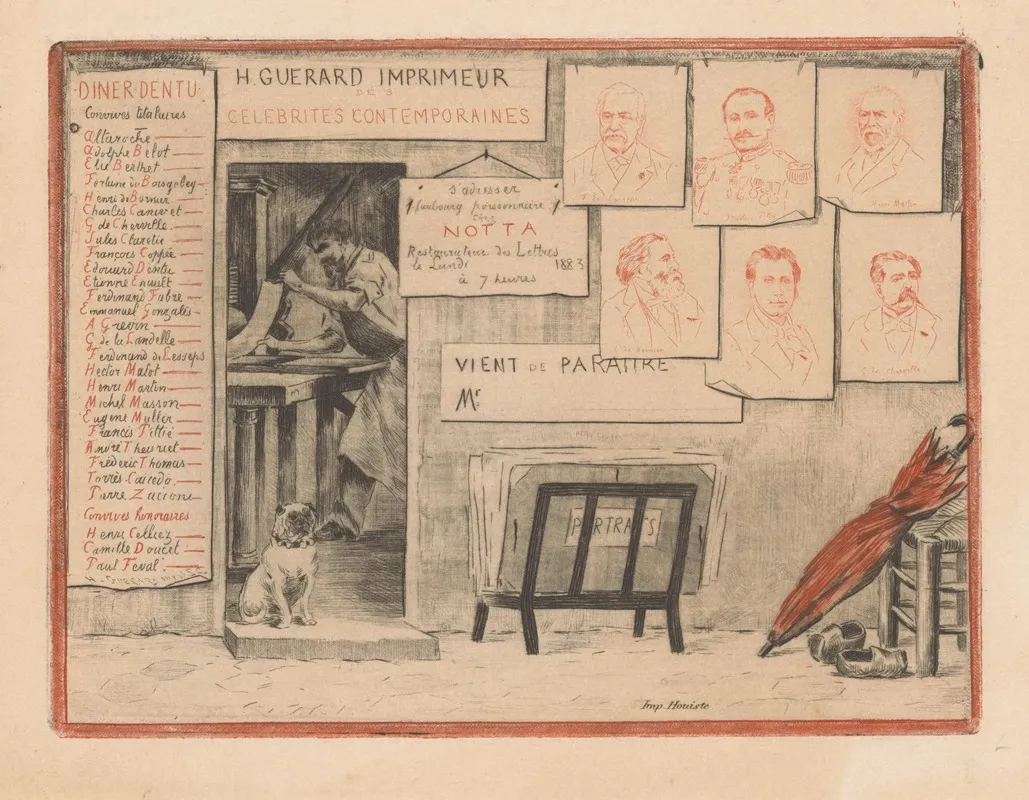 DINER·DENTU·
Convives titulaires
Altaroche
Adolphe Belot
Elie Berthet
Fortuné du Boisgobey
Henri de Bornier
Charles Canivet
G de Cherville
Jules Claretie
François Coppée
Edouard Dentu
Etienne Enault
Ferdinand Fabre
Emmanuel Gonzalès
A Grevin
G de la Landelle
Ferdinand de Lesseps
Hector Malot
Henri Martin
Michel Masson
Eugène Muller
Francis Pittié
André Theuriet
Frédéric Thomas
Torrès Caicedo
Pierre Zaccone
Convives honoraires
Henri Celliez
Camille Doucet
Paul Féval
H. GUERARD
H. GUERARD IMPRIMEUR
DE S
CELEBRITES CONTEMPORAINES
s'adresser
1 faubourg poissonnière 1
chez
NOTTA
Restaurateur des Lettres
le Lundi 1883
à 7 heures
Henri Martin
G. de Cherville
VIENT DE PARAITRE
Mr
PORTRAITS
Imp. Houiste